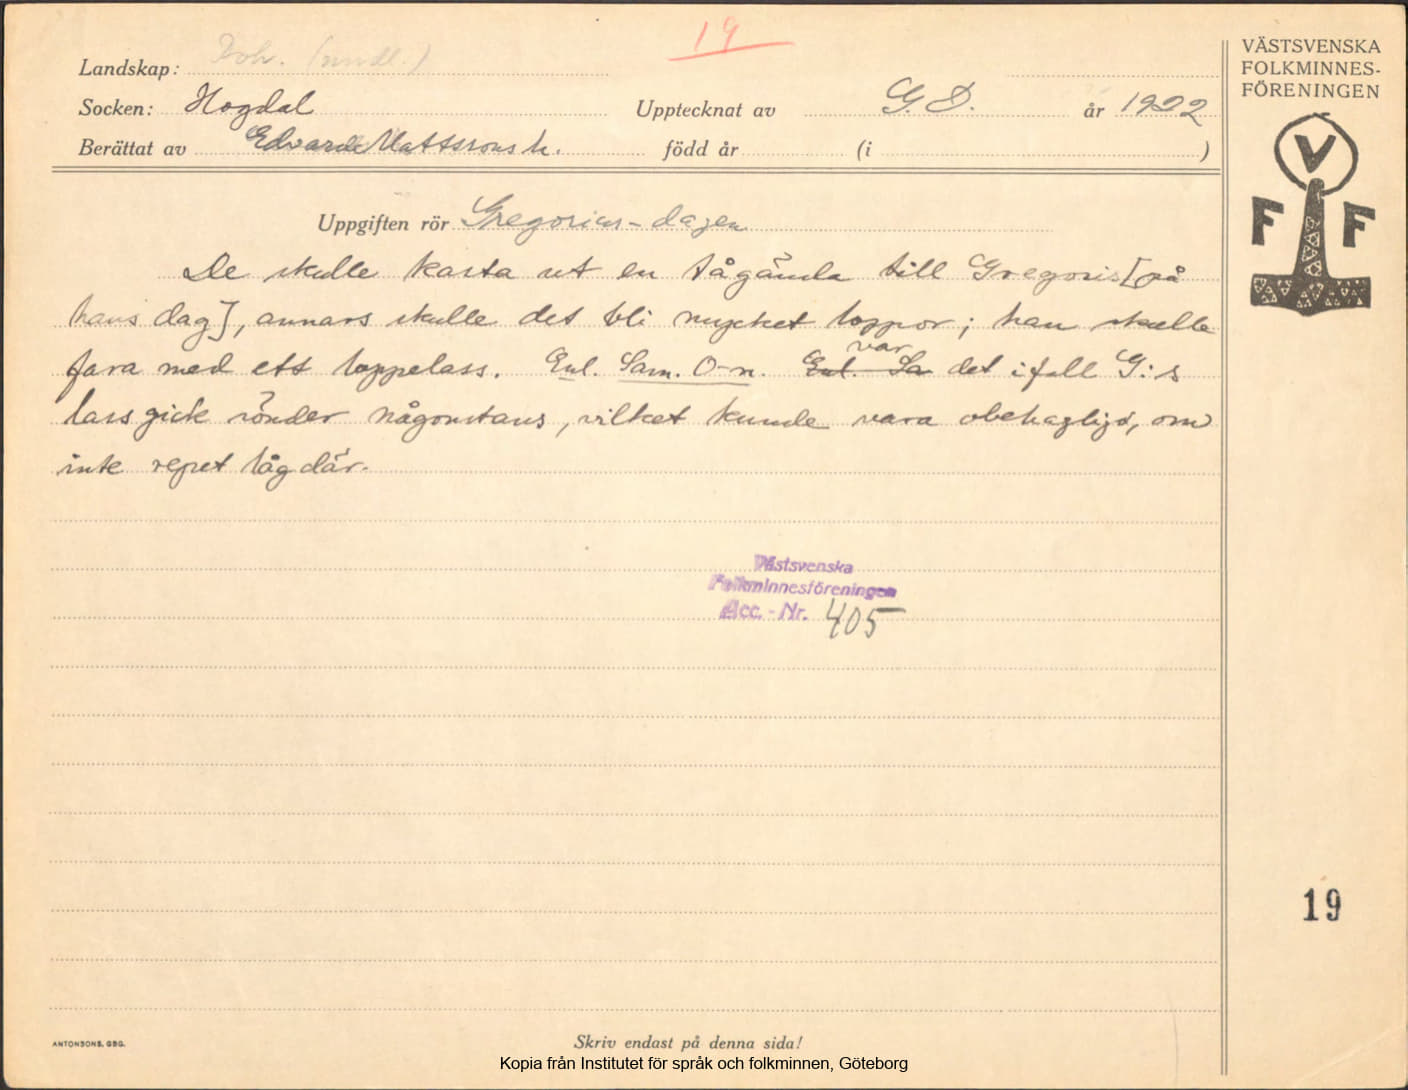 19
Landskap: Boh. (mndl.)
VÄSTSVENSKA
FOLKMINNES-
FÖRENINGEN
Socken: Hogdal Upptecknat av G. D. år 1922
Berättat av Edvard Mattssons h. född år (i )
V
F F
Uppgiften rör Gregorius-dagen
De skulle kasta ut en tågända till Gregoris [på
hans dag], annars skulle det bli mycket loppor; han skulle
fara med ett loppelass. Enl. Sam. O-n. Enl. Sa var det ifall G:s
lass gick sönder någonstans, vilket kunde vara obehagligt, om
inte repet låg där.
Västsvenska
Folkminnesföreningen
Acc. - Nr. 405
19
ANTONSONS, GBG.
Skriv endast på denna sida!
Kopia från Institutet för språk och folkminnen, Göteborg